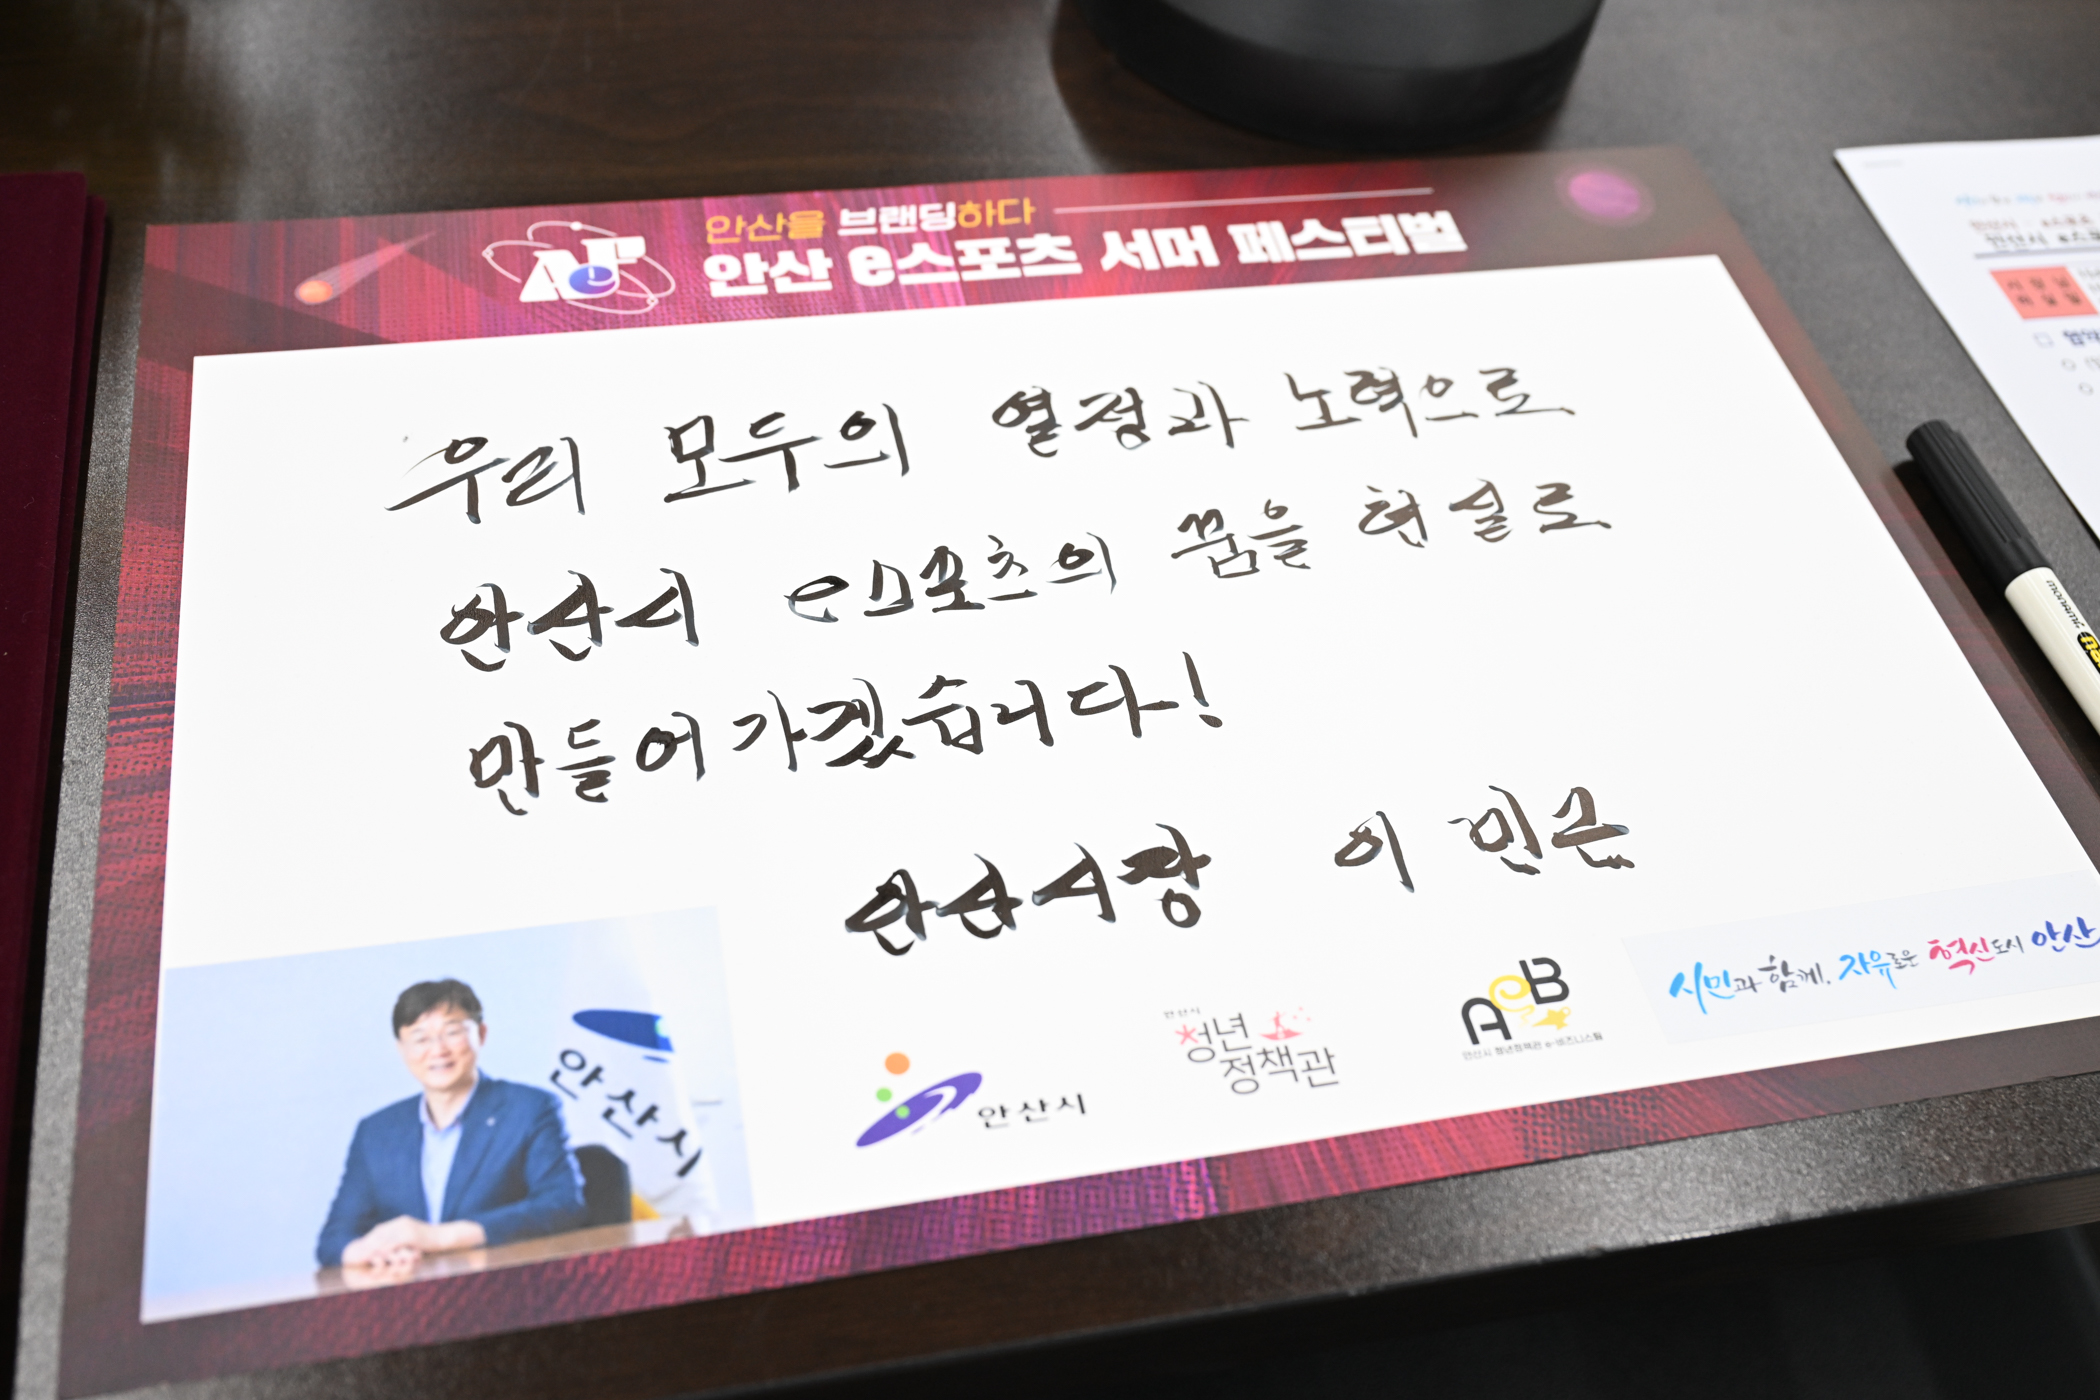 안산을 브랜딩하다
안산 e스포츠 서머 페스티벌
우리 모두의 열정과 노력으로
안산시 e스포츠의 꿈을 현실로
만들어가겠습니다!
안산시장 이민근
안산시
안산시
안산시
청년
정책관
AeB
안산시 청년정책관 e-비즈니스팀
시민과 함께, 자유로운 혁신도시 안산